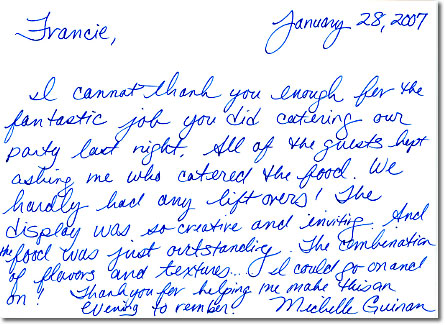 Francie, January 28, 2007
I cannot thank you enough for the
fantastic job you did catering our
party last night. All of the guests kept
asking me who catered the food. We
hardly had any liftovers! The
display was so creative and inviting. And
the food was just outstanding. The combination
of flavors and textures... I could go on and
on! Thank you for helping me make this an
evening to rember. Michelle Guinan